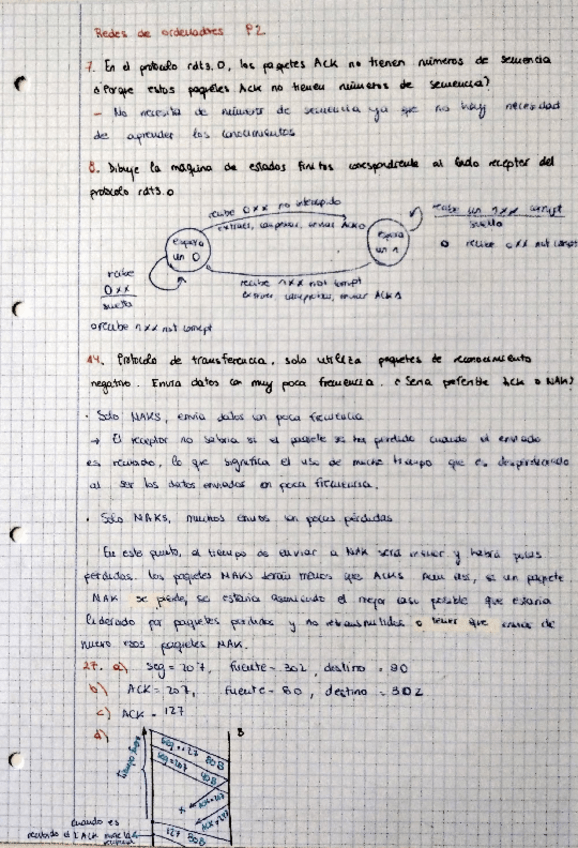 Redes de ordenadores P2
7. En el protocolo rdt3.0, los paquetes Ack no tienen números de secuencia
¿Porque estos paquetes Ack no tienen números de secuencia?
- No necesita de número de secuencia ya que no hay necesidad
de aprender los conocimientos
8. Dibuje la maquina de estados finitos correspondiente al lado receptor del
protocolo rdt3.0
recibe 0xx no interrupido
extraer, comprobar, enviar ACK0
espera
un 0
espera
un 1
recibe un 1xx corrupt
suelto
o recibe 0xx not corrupt
recibe
0xx
suelto
recibe 1xx not corrupt
extraer, comprobar, enviar ACK1
o recibe 1xx not corrupt
14. Protocolo de transferencia, solo utiliza paquetes de reconocimiento
negativo. Envia datos con muy poca frecuencia. ¿Seria preferible ACK o NAK?
· Solo NAKS, envia datos con poca frecuencia
→ El receptor no sabria si el paquete se ha perdido cuando el enviado
es recibido, lo que significa el uso de mucho tiempo que es desperdiciado
al ser los datos enviados en poca frecuencia.
· Solo NAKS, muchos envios con pocas pérdidas
En este punto, el tiempo de enviar a NAK será menor y habrá pocas
perdidas. Los paquetes NAKS serán menos que ACKS. Aun asi, si un paquete
NAK se pierde, se estaria asumiendo el mejor caso posible que estaria
liderado por paquetes perdidos y no retransmitidos o tener que enviar de
nuevo esos paquetes NAK.
27. a) seg = 207, fuente = 302, destino = 80
b) ACK = 207, fuente = 80, destino = 302
c) ACK = 127
d)
B
seg = 127 80B
seg = 207 40B
ACK = 207
x
ACK = 247
127 80B
cuando es
recibido el ACK